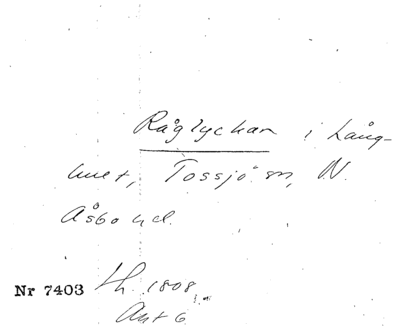 Råglyckan i Lång-
hult, Tossjö sn, N.
Åsbo hd.
Nr 7403 lh. 1808
Akt 6